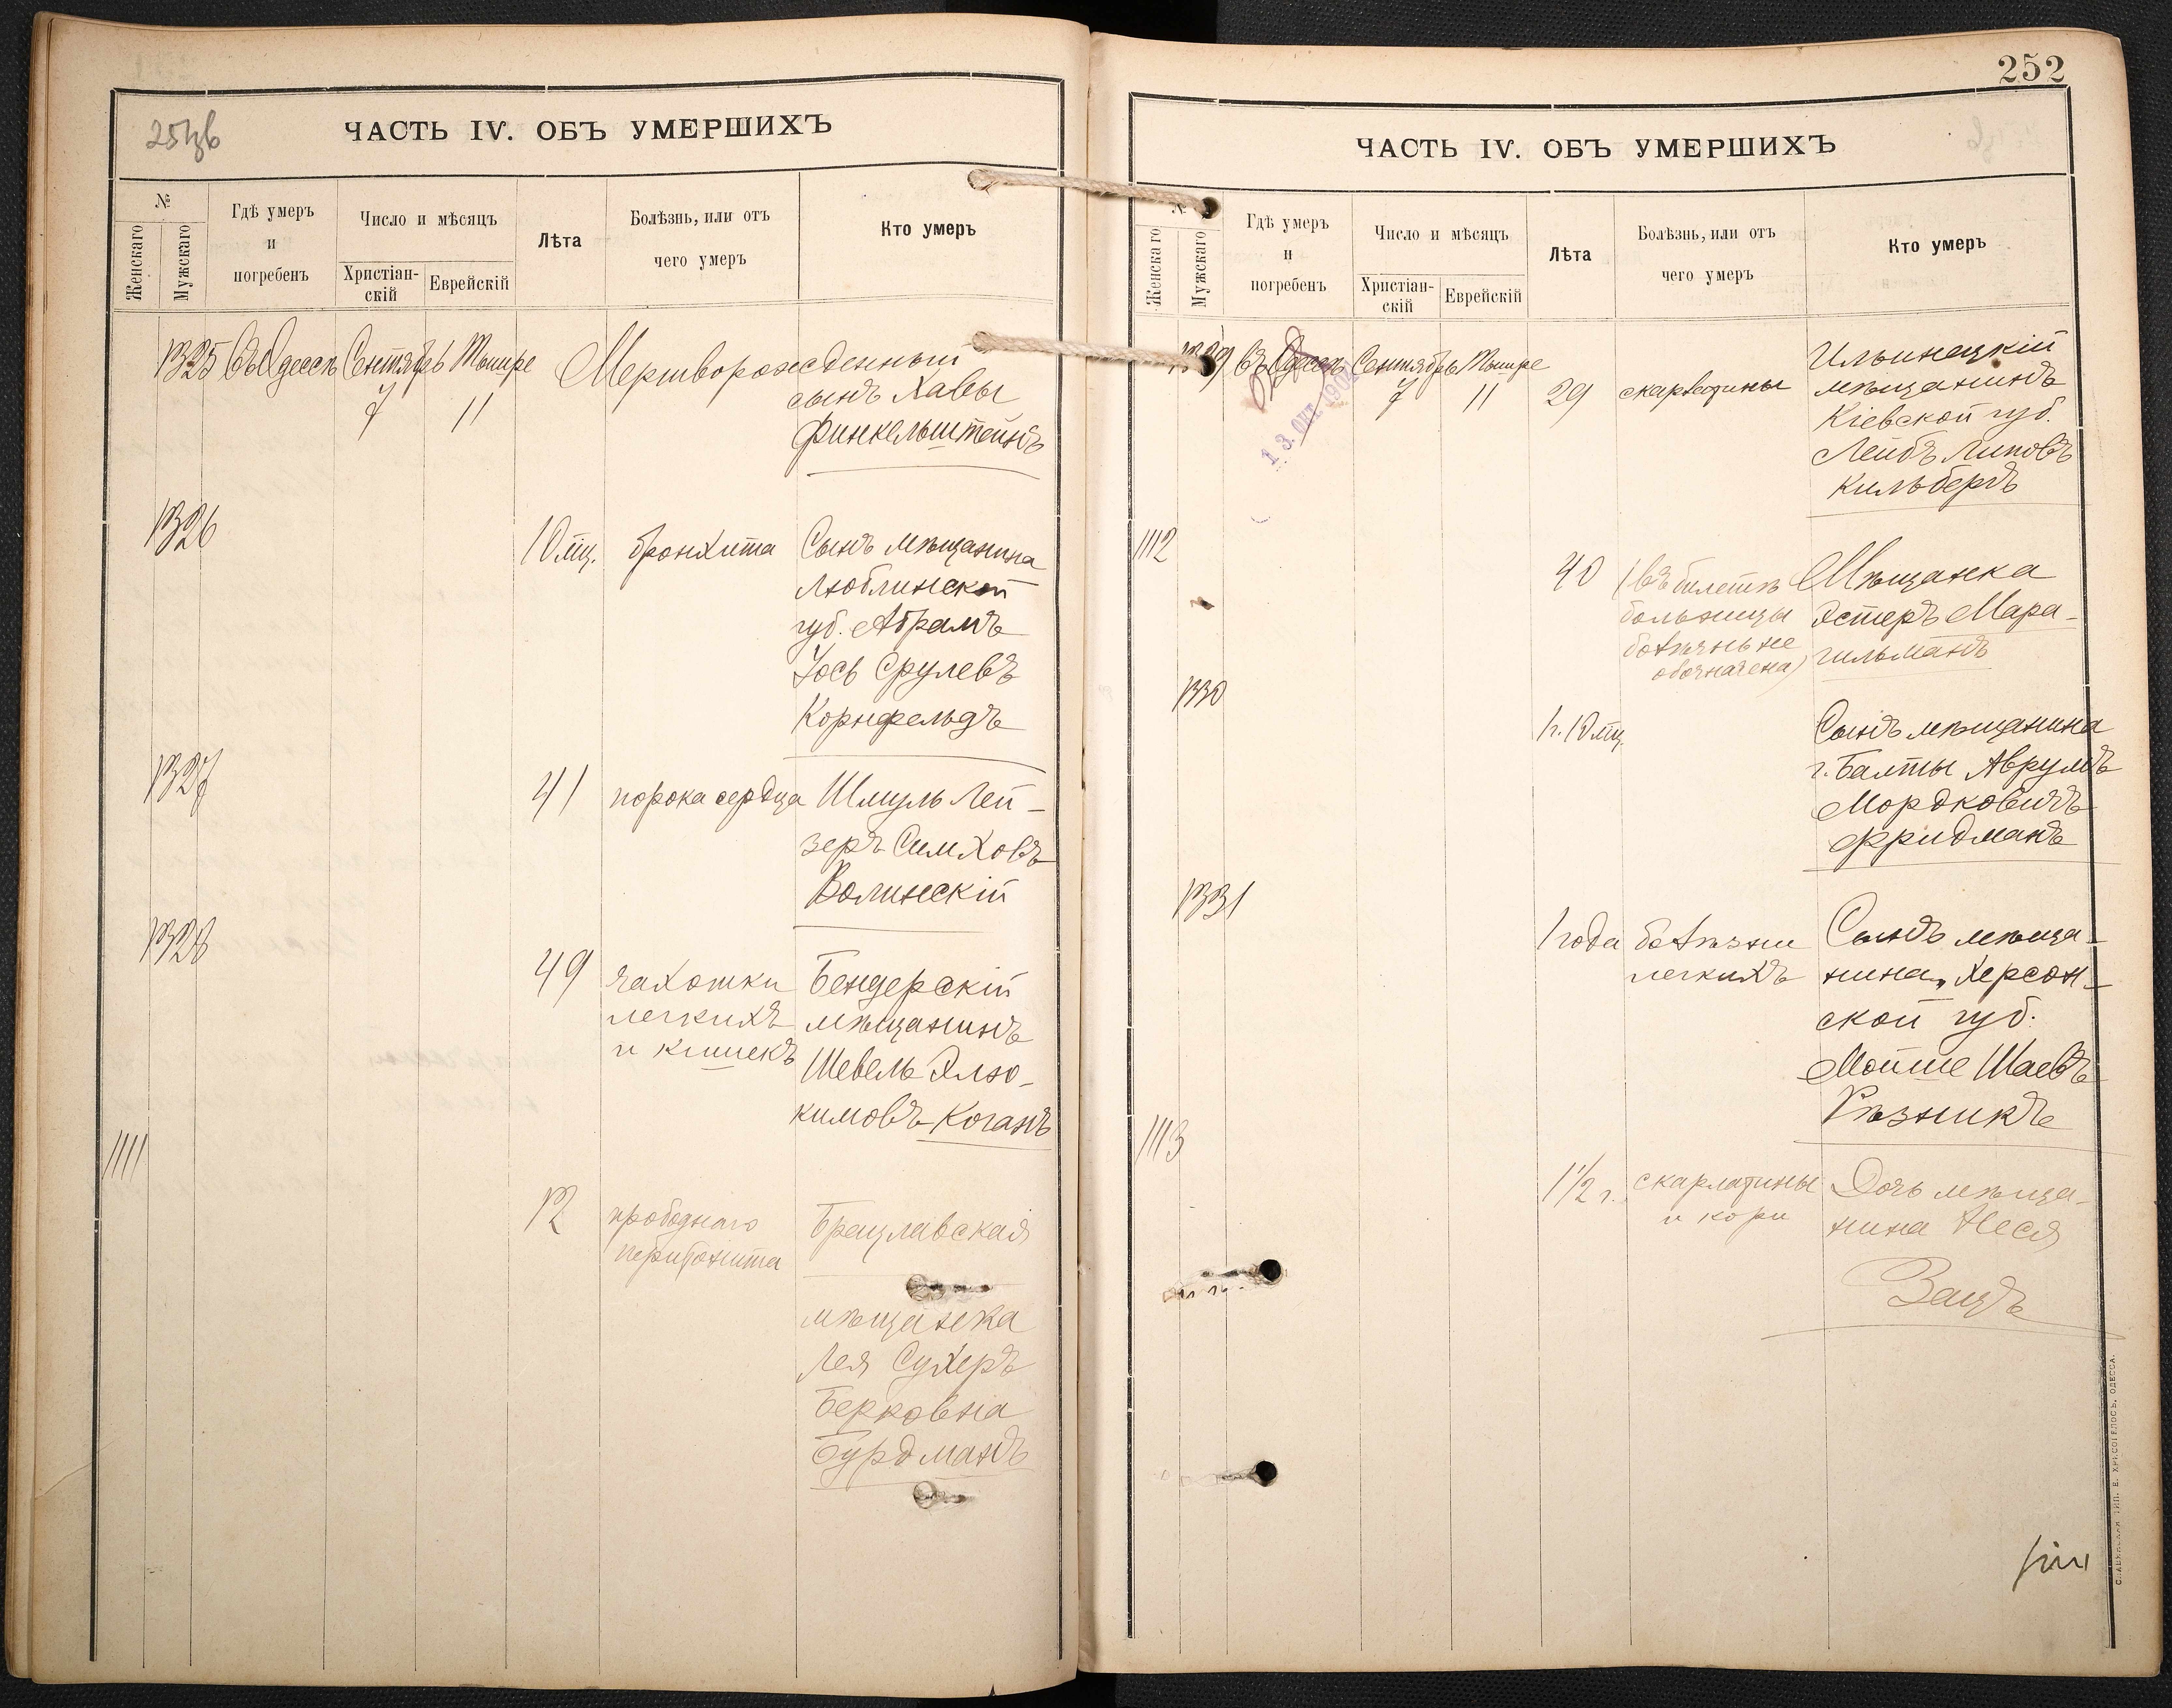 251 об
ЧАСТЬ IV. ОБЪ УМЕРШИХЪ
№
Женскаго
Мужскаго
Гдѣ умеръ
и
погребенъ
Число и мѣсяцъ
Христіан-
скій
Еврейскій
Лѣта
Болѣзнь, или отъ
чего умеръ
Кто умеръ
1325 въ Одессѣ Сентябрь Тишре Мертворожденный
7 11 сынъ Хавы
Финкельштейнъ
1326
10 мц. бронхита Сынъ мѣщанина
Люблинской
губ. Абрамъ
Іось Срулевъ
Корнфельдъ
1327
41 порока сердца Шмуль Лей-
зеръ Симховъ
Волинскій
1328
49 чахотки Бендерскій
легкихъ мѣщанинъ
и кишекъ Шевель Элю-
кимовъ Коганъ
1111
12 прободнаго Брацлавская
перитонита
мѣщанка
Лея Сухеръ
Берковна
Бурдманъ
252
ЧАСТЬ IV. ОБЪ УМЕРШИХЪ
№
Женскаго
Мужскаго
Гдѣ умеръ
и
погребенъ
Число и мѣсяцъ
Христіан-
скій
Еврейскій
Лѣта
Болѣзнь, или отъ
чего умеръ
Кто умеръ
1329 въ Одессѣ Сентябрь Тишре Ильинецкій
7 11 29 скарлатины мѣщанинъ
13. ОКТ. 190
Кіевской губ.
Лейбъ Липовъ
Кильберъ
1112
40 (въ билетѣ Мѣщанка
больницы Эстеръ Мара-
болѣзнь не гильманъ
обозначена)
1330
1 г. 10 мц. Сынъ мѣщанина
г. Балты Аврумъ
Мордковичъ
Фридманъ
1331
1 года болѣзни Сынъ мѣща-
легкихъ нина, Херсон-
ской губ.
Мойше Шаевъ
Рѣзникъ
1113
1 1/2 г. скарлатины Дочь мѣща-
и кори нина Неся
Зацъ
СЛАВЯНСКАЯ ТИП. Е. ХРИСОГЕЛОСЪ, ОДЕССА.